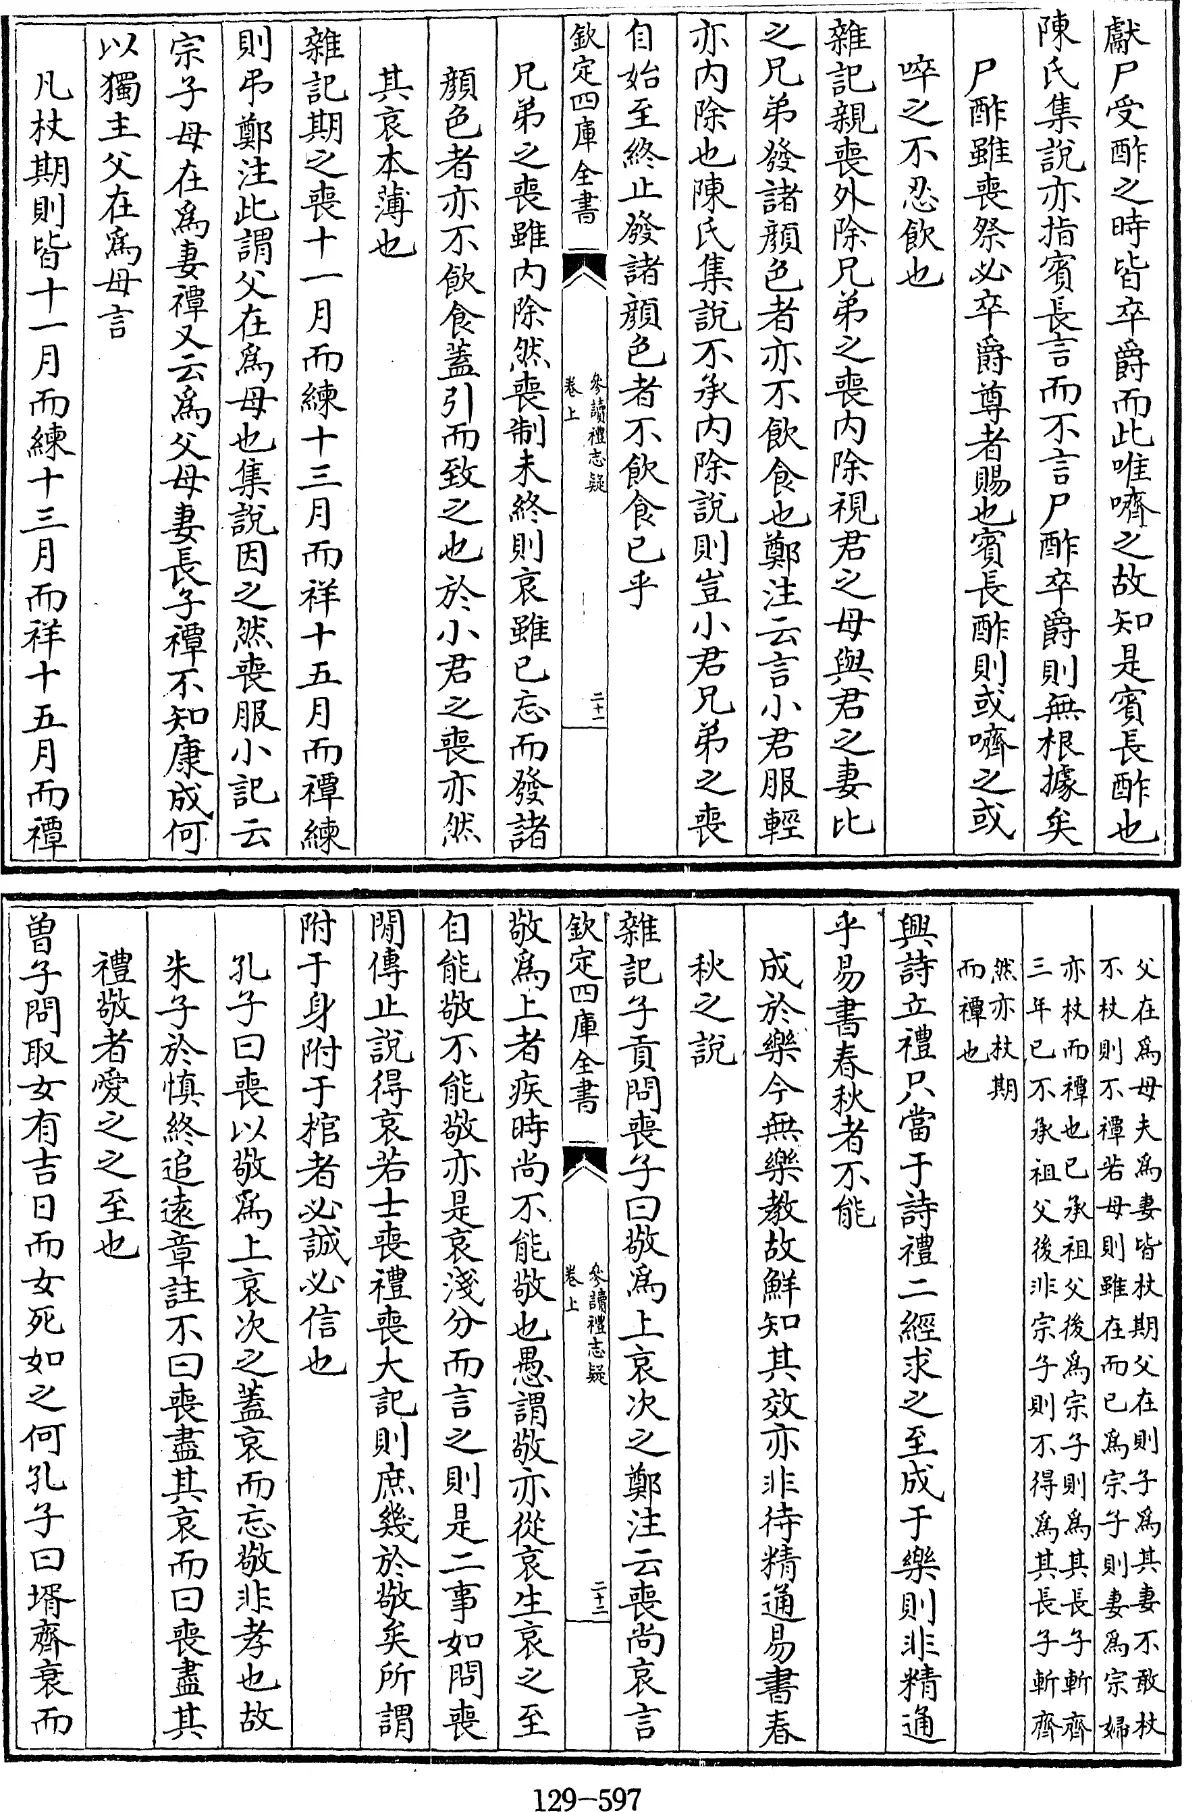 獻尸受酢之時皆卒爵而此唯嚌之故知是賓長酢也
陳氏集說亦指賓長言而不言尸酢卒爵則無根據矣
尸酢雖喪祭必卒爵尊者賜也賓長酢則或嚌之或
啐之不忍飲也
雜記親喪外除兄弟之喪内除視君之母與君之妻比
之兄弟發諸顔色者亦不飲食也鄭注云言小君服輕
亦内除也陳氏集說不承内除說則豈小君兄弟之喪
自始至終止發諸顔色者不飲食已乎
欽定四庫全書
參讀禮志疑
卷上
二十一
兄弟之喪雖内除然喪制未終則哀雖已忘而發諸
顔色者亦不飲食蓋引而致之也於小君之喪亦然
其哀本薄也
雜記期之喪十一月而練十三月而祥十五月而禫練
則弔鄭注此謂父在爲母也集說因之然喪服小記云
宗子母在爲妻禫又云爲父母妻長子禫不知康成何
以獨主父在爲母言
凡杖期則皆十一月而練十三月而祥十五月而禫
父在爲母夫爲妻皆杖期父在則子爲其妻不敢杖
不杖則不禫若母則雖在而已爲宗子則妻爲宗婦
亦杖而禫也已承祖父後爲宗子則爲其長子斬齊
三年已不承祖父後非宗子則不得爲其長子斬齊
然亦杖期
而禫也
興詩立禮只當于詩禮二經求之至成于樂則非精通
乎易書春秋者不能
成於樂今無樂教故鮮知其效亦非待精通易書春
秋之說
雜記子貢問喪子曰敬爲上哀次之鄭注云喪尚哀言
欽定四庫全書
參讀禮志疑
卷上
二十二
敬爲上者疾時尚不能敬也愚謂敬亦從哀生哀之至
自能敬不能敬亦是哀淺分而言之則是二事如問喪
閒傳止說得哀若士喪禮喪大記則庶幾於敬矣所謂
附于身附于棺者必誠必信也
孔子曰喪以敬爲上哀次之蓋哀而忘敬非孝也故
朱子於慎終追遠章註不曰喪盡其哀而曰喪盡其
禮敬者愛之之至也
曽子問取女有吉日而女死如之何孔子曰壻齊衰而
129-597